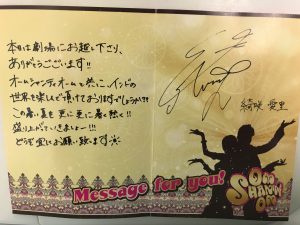 本日は劇場にお越し下さり、
ありがとうございます!!
オームシャンティオームと共に、インドの
世界を楽しんで頂けておりますでしょうか!?
この暑い夏を更に更に暑く熱く!!
盛り上がっていきましょー!!!
どうぞ宜しくお願い致します
綺咲 愛里
Message for you!
OM
SHANTI
OM